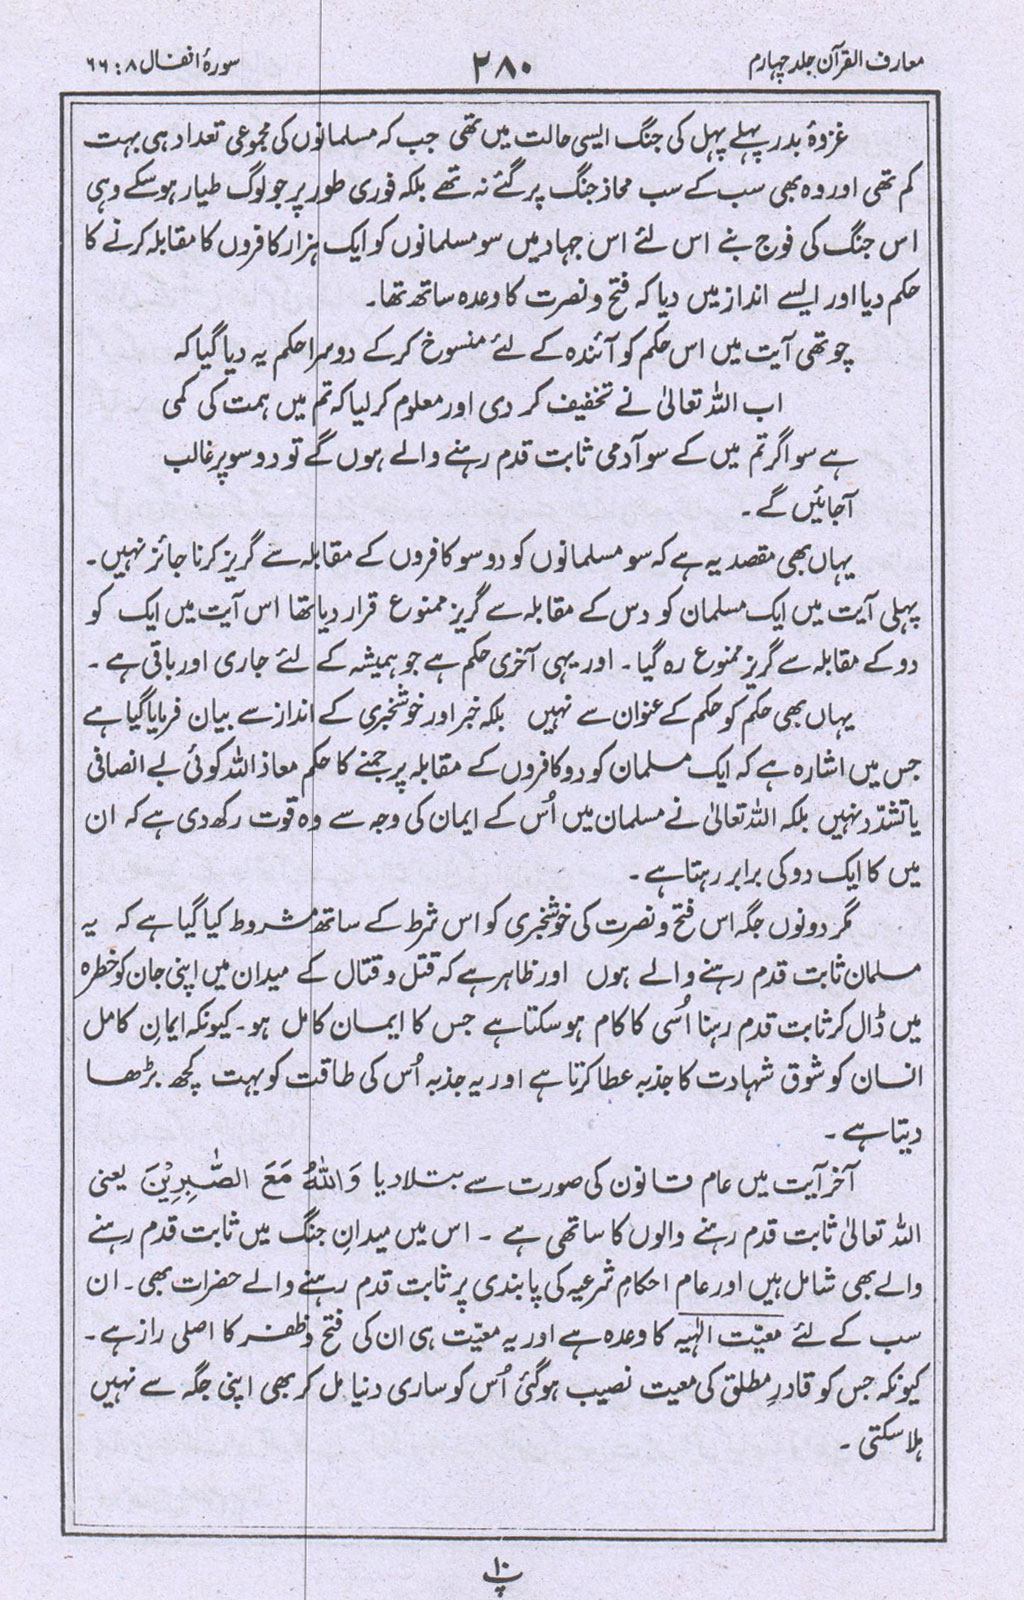 معارف القرآن جلد چہارم
۲۸۰
سورۂ انفال ۸ : ۶۶
غزوۂ بدر پہلے پہل کی جنگ ایسی حالت میں تھی جب کہ مسلمانوں کی مجموعی تعداد ہی بہت
کم تھی اور وہ بھی سب کے سب محاذ جنگ پر گئے نہ تھے بلکہ فوری طور پر جو لوگ طیار ہو سکے وہی
اس جنگ کی فوج بنے اس لئے اس جہاد میں سو مسلمانوں کو ایک ہزار کافروں کا مقابلہ کرنے کا
حکم دیا اور ایسے انداز میں دیا کہ فتح و نصرت کا وعدہ ساتھ تھا۔
چوتھی آیت میں اس حکم کو آئندہ کے لئے منسوخ کر کے دوسرا حکم یہ دیا گیا کہ
اب اللہ تعالیٰ نے تخفیف کر دی اور معلوم کر لیا کہ تم میں ہمت کی کمی
ہے سو اگر تم میں کے سو آدمی ثابت قدم رہنے والے ہوں گے تو دو سو پر غالب
آجائیں گے۔
یہاں بھی مقصد یہ ہے کہ سو مسلمانوں کو دو سو کافروں کے مقابلہ سے گریز کرنا جائز نہیں۔
پہلی آیت میں ایک مسلمان کو دس کے مقابلہ سے گریز ممنوع قرار دیا تھا اس آیت میں ایک کو
دو کے مقابلہ سے گریز ممنوع رہ گیا۔ اور یہی آخری حکم ہے جو ہمیشہ کے لئے جاری اور باقی ہے۔
یہاں بھی حکم کو حکم کے عنوان سے نہیں بلکہ خبر اور خوشخبری کے انداز سے بیان فرمایا گیا ہے
جس میں اشارہ ہے کہ ایک مسلمان کو دو کافروں کے مقابلہ پر جمنے کا حکم معاذ اللہ کوئی بے انصافی
یا تشدّد نہیں بلکہ اللہ تعالیٰ نے مسلمان میں اُس کے ایمان کی وجہ سے وہ قوت رکھ دی ہے کہ ان
میں کا ایک دو کی برابر رہتا ہے۔
مگر دونوں جگہ اس فتح و نصرت کی خوشخبری کو اس شرط کے ساتھ مشروط کیا گیا ہے کہ یہ
مسلمان ثابت قدم رہنے والے ہوں اور ظاہر ہے کہ قتل و قتال کے میدان میں اپنی جان کو خطرہ
میں ڈال کر ثابت قدم رہنا اُسی کا کام ہو سکتا ہے جس کا ایمان کامل ہو۔ کیونکہ ایمانِ کامل
انسان کو شوق شہادت کا جذبہ عطا کرتا ہے اور یہ جذبہ اُس کی طاقت کو بہت کچھ بڑھا
دیتا ہے۔
آخر آیت میں عام قانون کی صورت سے بتلا دیا وَاللّٰهُ مَعَ الصّٰبِرِيْنَ یعنی
اللہ تعالیٰ ثابت قدم رہنے والوں کا ساتھی ہے۔ اس میں میدانِ جنگ میں ثابت قدم رہنے
والے بھی شامل ہیں اور عام احکامِ شرعیہ کی پابندی پر ثابت قدم رہنے والے حضرات بھی۔ ان
سب کے لئے معیّت الٰہیہ کا وعدہ ہے اور یہ معیّت ہی ان کی فتح و ظفر کا اصلی راز ہے۔
کیونکہ جس کو قادرِ مطلق کی معیت نصیب ہو گئی اُس کو ساری دنیا مل کر بھی اپنی جگہ سے نہیں
ہلا سکتی۔
پ ۱۰